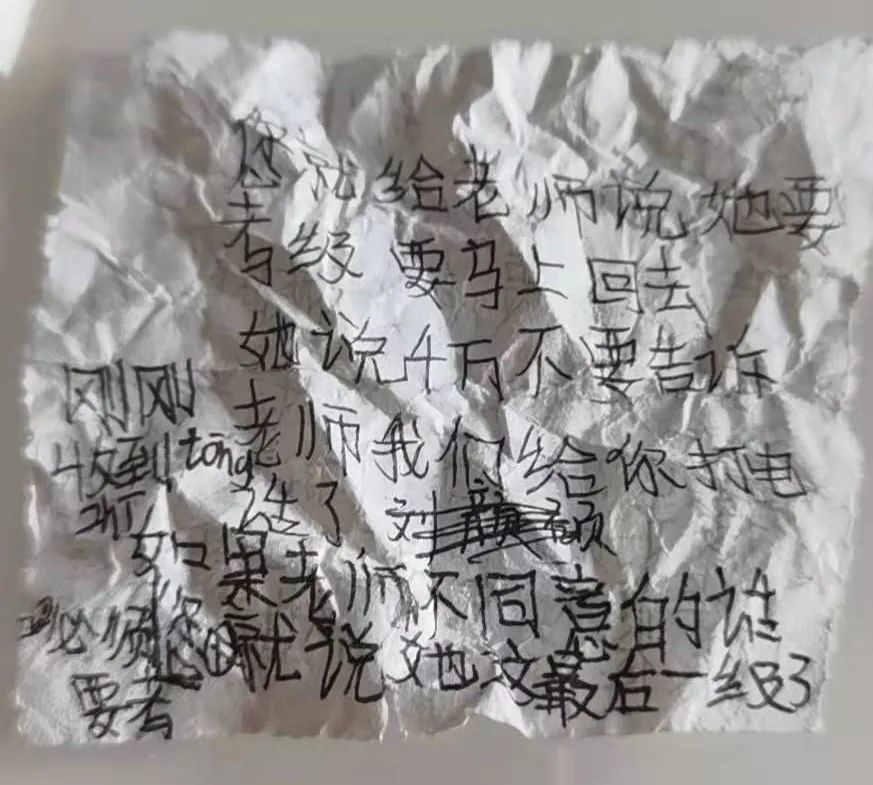 您就给老师说她要
考级 要马上回去
她说4万不要告诉
老师我们给你打电
话了 刘 硕
如果老师不同意的话
您就说她这最后一级了
刚刚
收到tōng
必须
要考